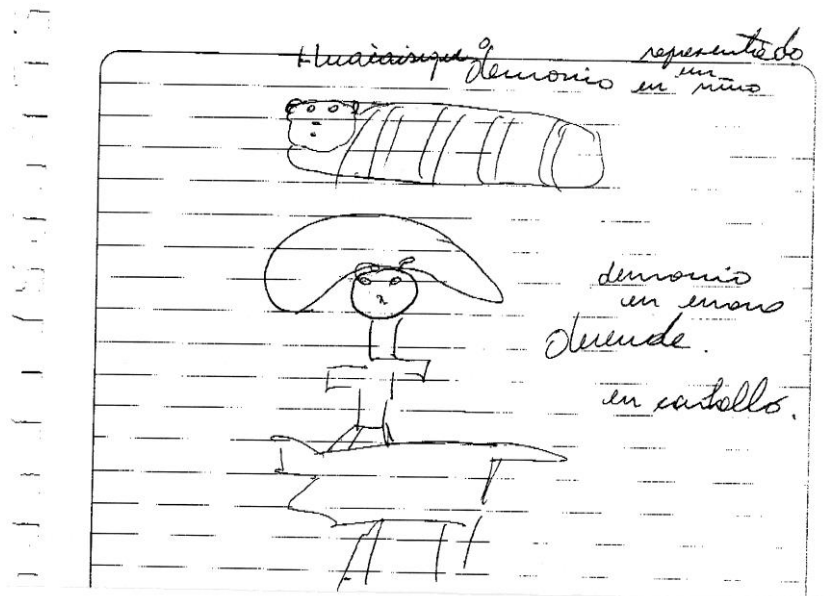 o demonio representado
en un niño
demonio
en enano
duende.
en caballo.